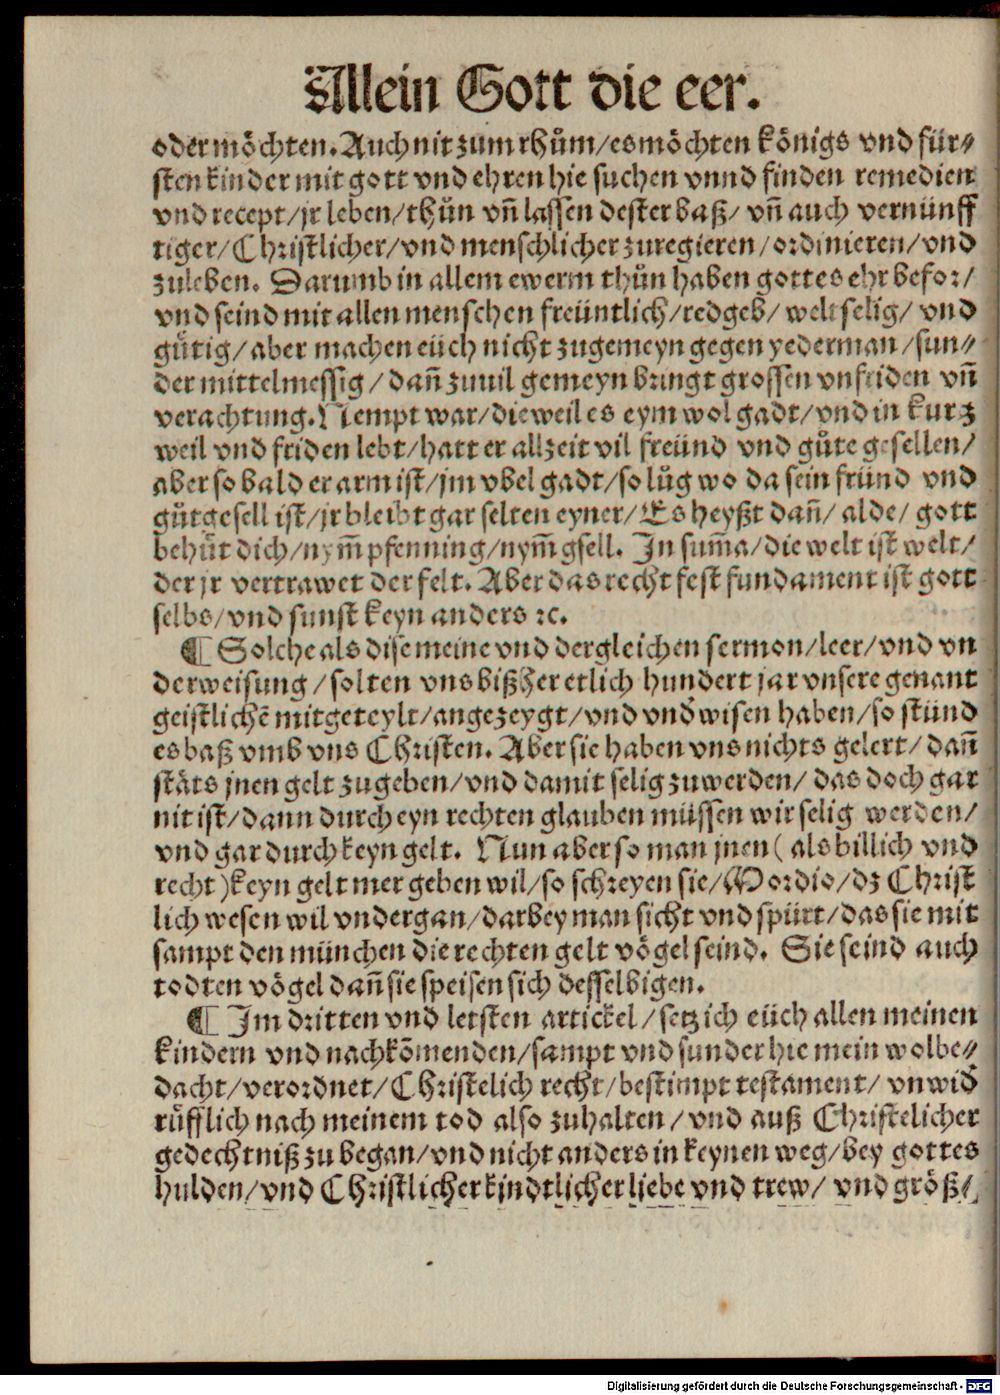 Allein Gott die eer.
oder möchten. Auch nit zum rhům/es möchten königs vnd für⸗
sten kinder mit gott vnd ehren hie suchen vnnd finden remedien
vnd recept/jr leben/thůn vñ lassen dester baß/ vñ auch vernünff
tiger/Christlicher/vnd menschlicher zuregieren/ordinieren/vnd
zuleben. Darumb in allem ewerm thůn haben gottes ehr befor/
vnd seind mit allen menschen freüntlich/redgeb/ welt selig/ vnd
gůtig/aber machen eüch nicht zugemeyn gegen yederman/sun⸗
der mittelmessig/dañ zuuil gemeyn bringt grossen vnfriden vñ
verachtung. Nempt war/dieweil es eym wol gadt/vnd in kurz
weil vnd friden lebt/hatt er allzeit vil freünd vnd gůte gesellen/
aber so bald er arm ist/jm vbel gadt/so lůg wo da sein fründ vnd
gůt gesell ist/jr bleibt gar selten eyner/Es heyßt dañ/ alde/ gott
behüt dich/nym̃ pfenning/nym̃ gsell. In sum̃a/die welt ist welt/
der jr vertrawet der felt. Aber das recht fest fundament ist gott
selbs/vnd sunst keyn anders ꝛc.
¶ Solche als dise meine vnd dergleichen sermon/leer/vnd vn
derweisung/solten vns bißher etlich hundert jar vnsere genant
geistlichẽ mitgeteylt/angezeygt/vnd vnd̾wisen haben/so stünd
es baß vmb vns Christen. Aber sie haben vns nichts gelert/dañ
stäts jnen gelt zugeben/vnd damit selig zuwerden/ das doch gar
nit ist/dann durch eyn rechten glauben müssen wir selig werden/
vnd gar durch keyn gelt. Nun aber so man jnen ( als billich vnd
recht )keyn gelt mer geben wil/so schreyen sie/Mordio/dz Christ
lich wesen wil vndergan/darbey man sicht vnd spürt/das sie mit
sampt den münchen die rechten gelt vögel seind. Sie seind auch
todten vögel dañ sie speisen sich desselbigen.
¶ Im dritten vnd letsten artickel/setz ich eüch allen meinen
kindern vnd nachkõmenden/sampt vnd sunder hie mein wolbe⸗
dacht/verordnet/Christelich recht/bestimpt testament/ vnwid̾
růfflich nach meinem tod also zuhalten/vnd auß Christelicher
gedechtniß zu began/vnd nicht anders in keynen weg/bey gottes
hulden/vnd Christlicher kindtlicher liebe vnd trew/ vnd größ⸗
Digitalisierung gefördert durch die Deutsche Forschungsgemeinschaft - DFG